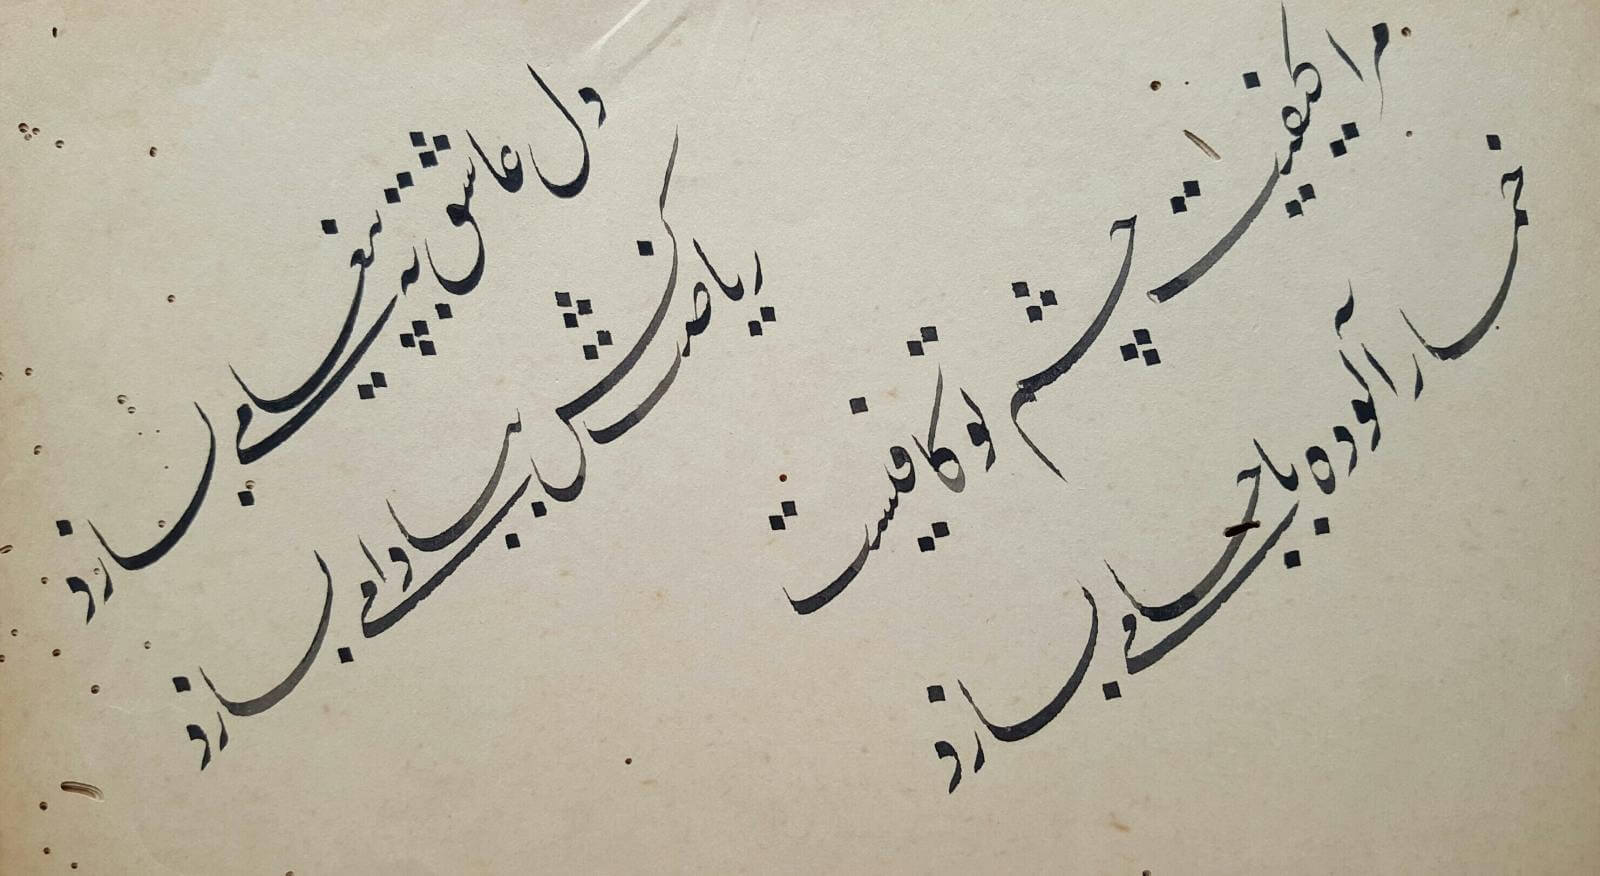 دل عاشق به پیغامی بسازد
خمار آلوده با جامی بسازد
مرا کیفیت چشم تو کافیست
ریاضت کش ببادامی بسازد